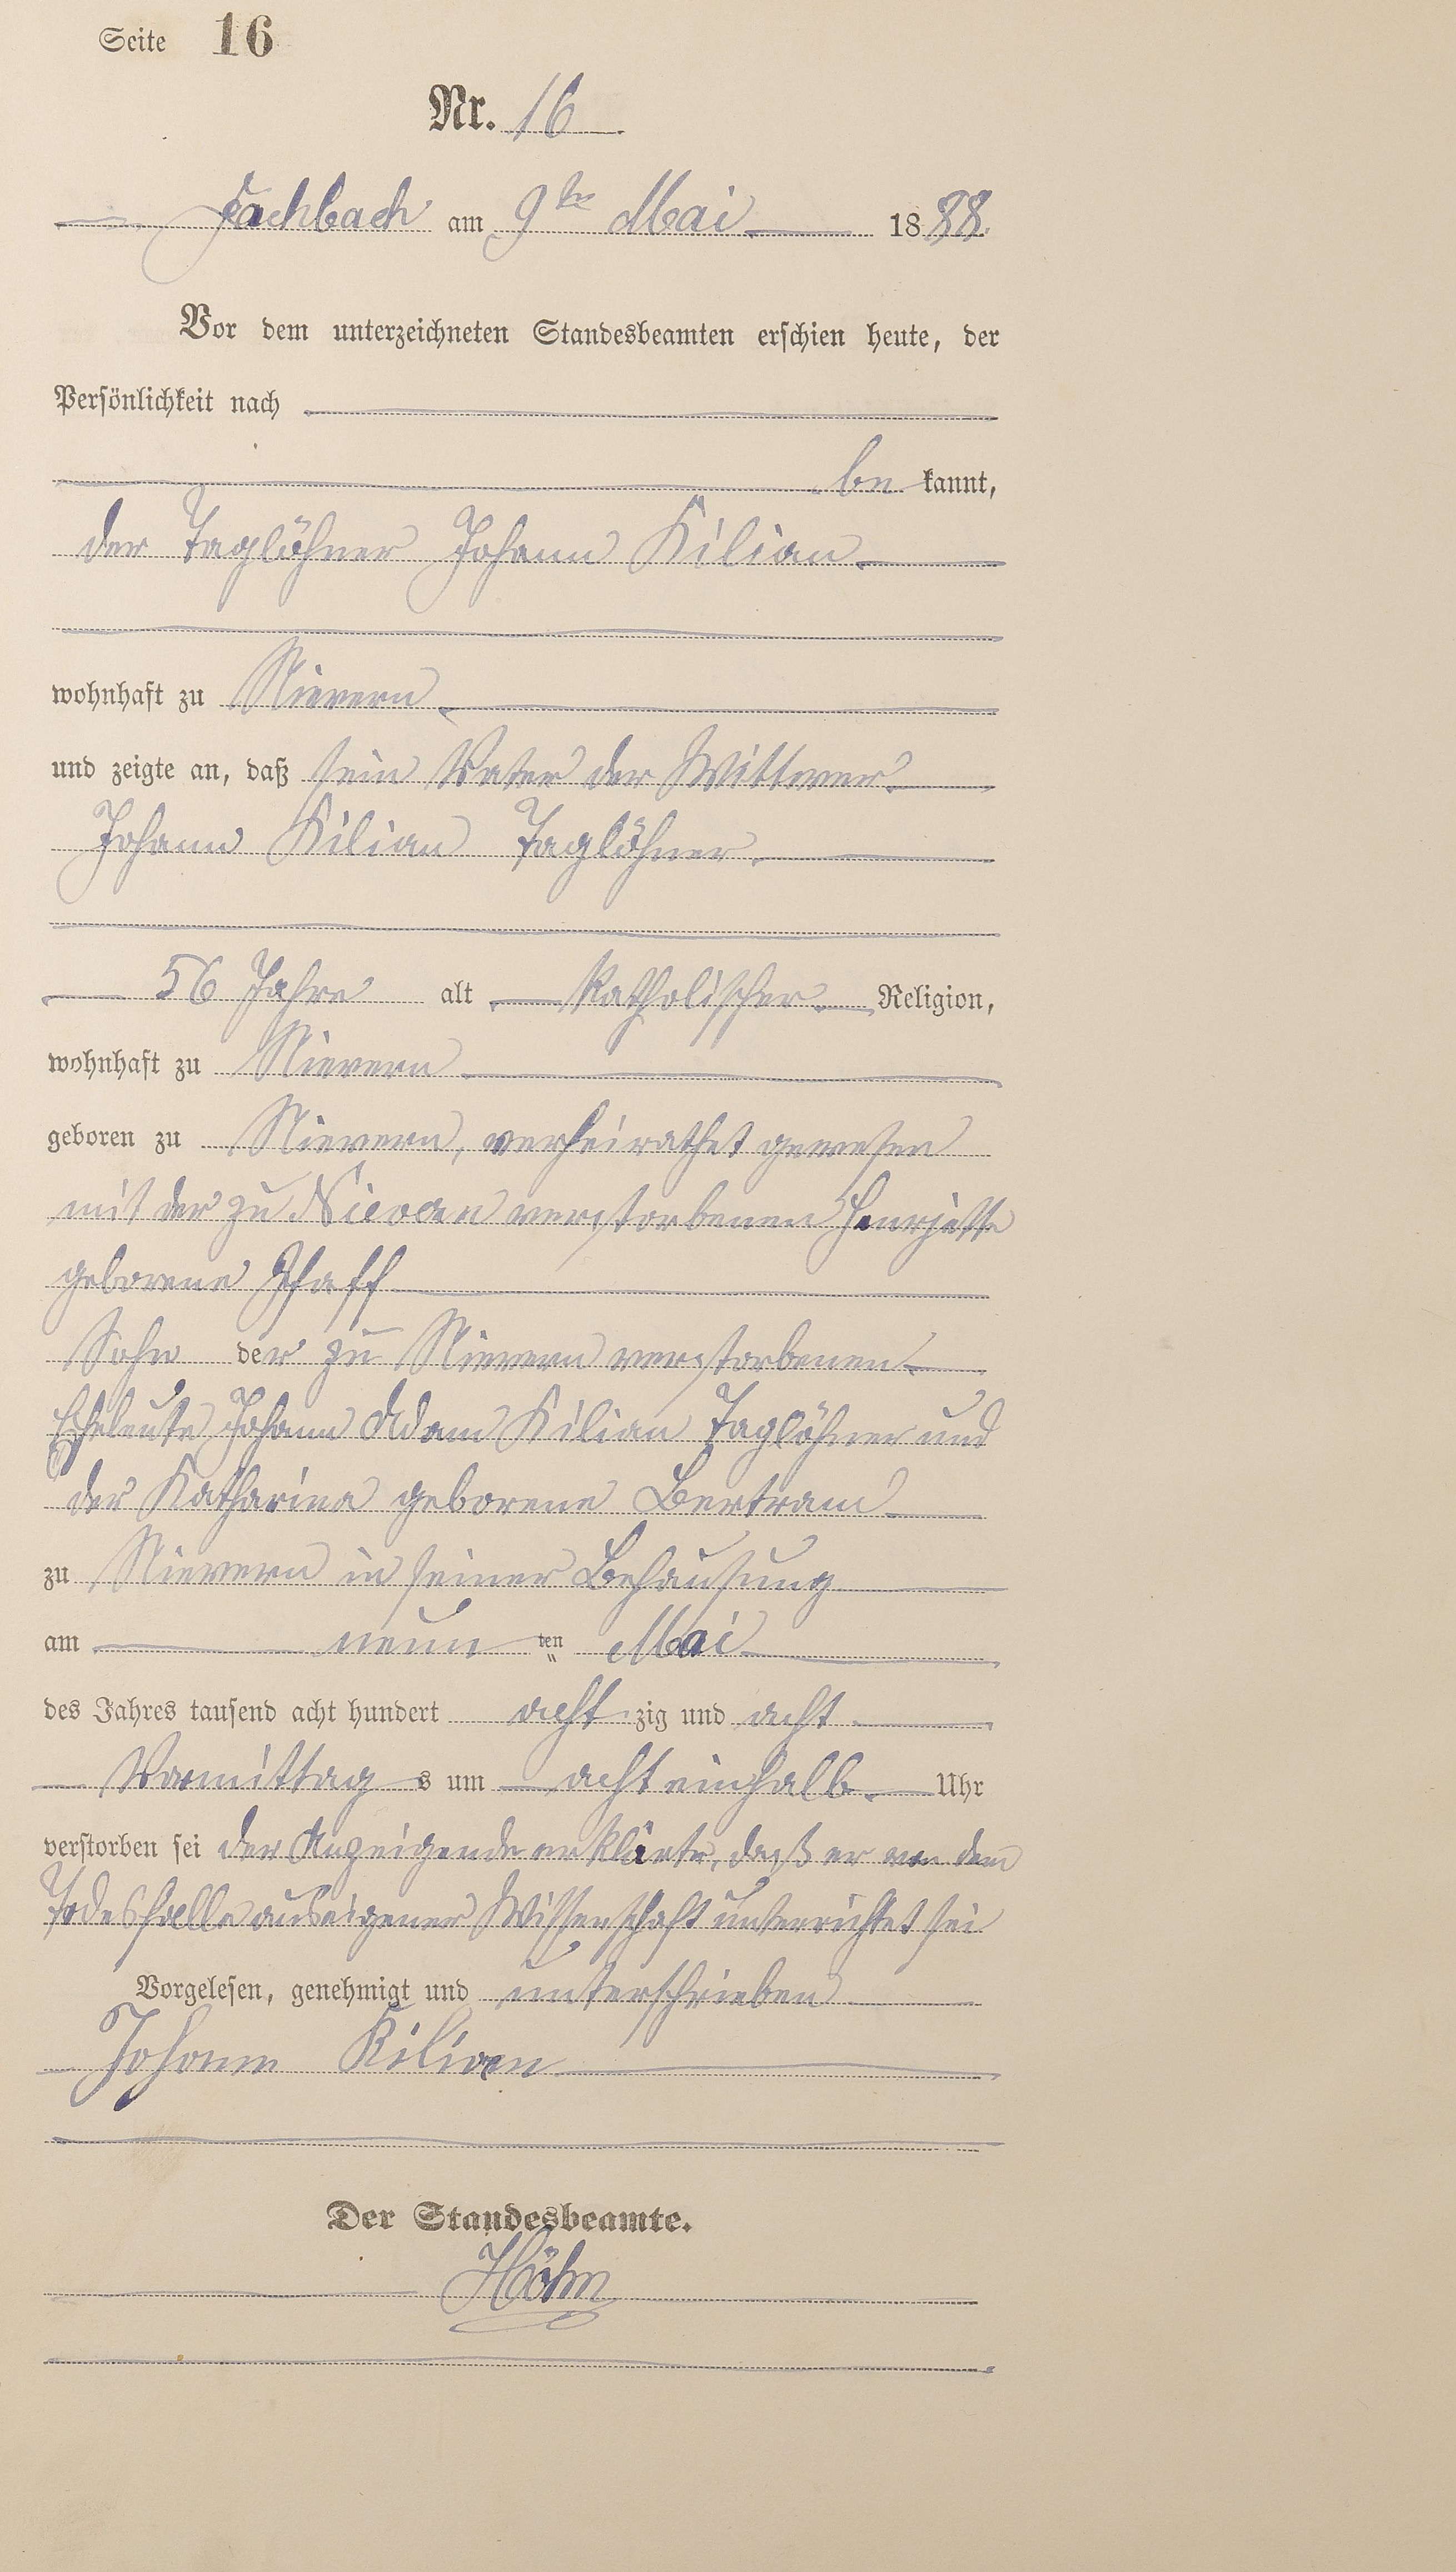 Seite 16
Nr. 16
Fachbach am 9ten Mai 1888.
Vor dem unterzeichneten Standesbeamten erschien heute, der
Persönlichkeit nach
be kannt,
der Taglöhner Johann Kilian
wohnhaft zu Nievern
und zeigte an, daß sein Vater der Wittwer
Johann Kilian Taglöhner
56 Jahre alt katholischer Religion,
wohnhaft zu Nievern
geboren zu Nievern, verheirathet gewesen
mit der zu Nievern verstorbenen Henrjette
geborene Pfaff
Sohn der zu Nievern verstorbenen
Eheleute Johann Adam Kilian Taglöhner und
der Katharina geborene Bertram
zu Nievern in seiner Behausung
am neun ten Mai
des Jahres tausend acht hundert acht zig und acht
Vormittag s um acht einhalb Uhr
verstorben sei der Anzeigende erklärte, daß er von dem
Todesfalle aus eigener Wissenschaft unterrichtet sei
Vorgelesen, genehmigt und unterschrieben
Johann Kilian
Der Standesbeamte.
Höhn